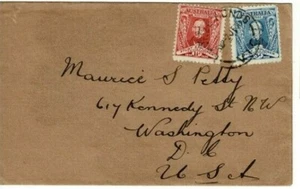 AUSTRALIA AUSTRALIA
Maurice S Petty
617 Kennedy St N W
Washington
D. C
U S A